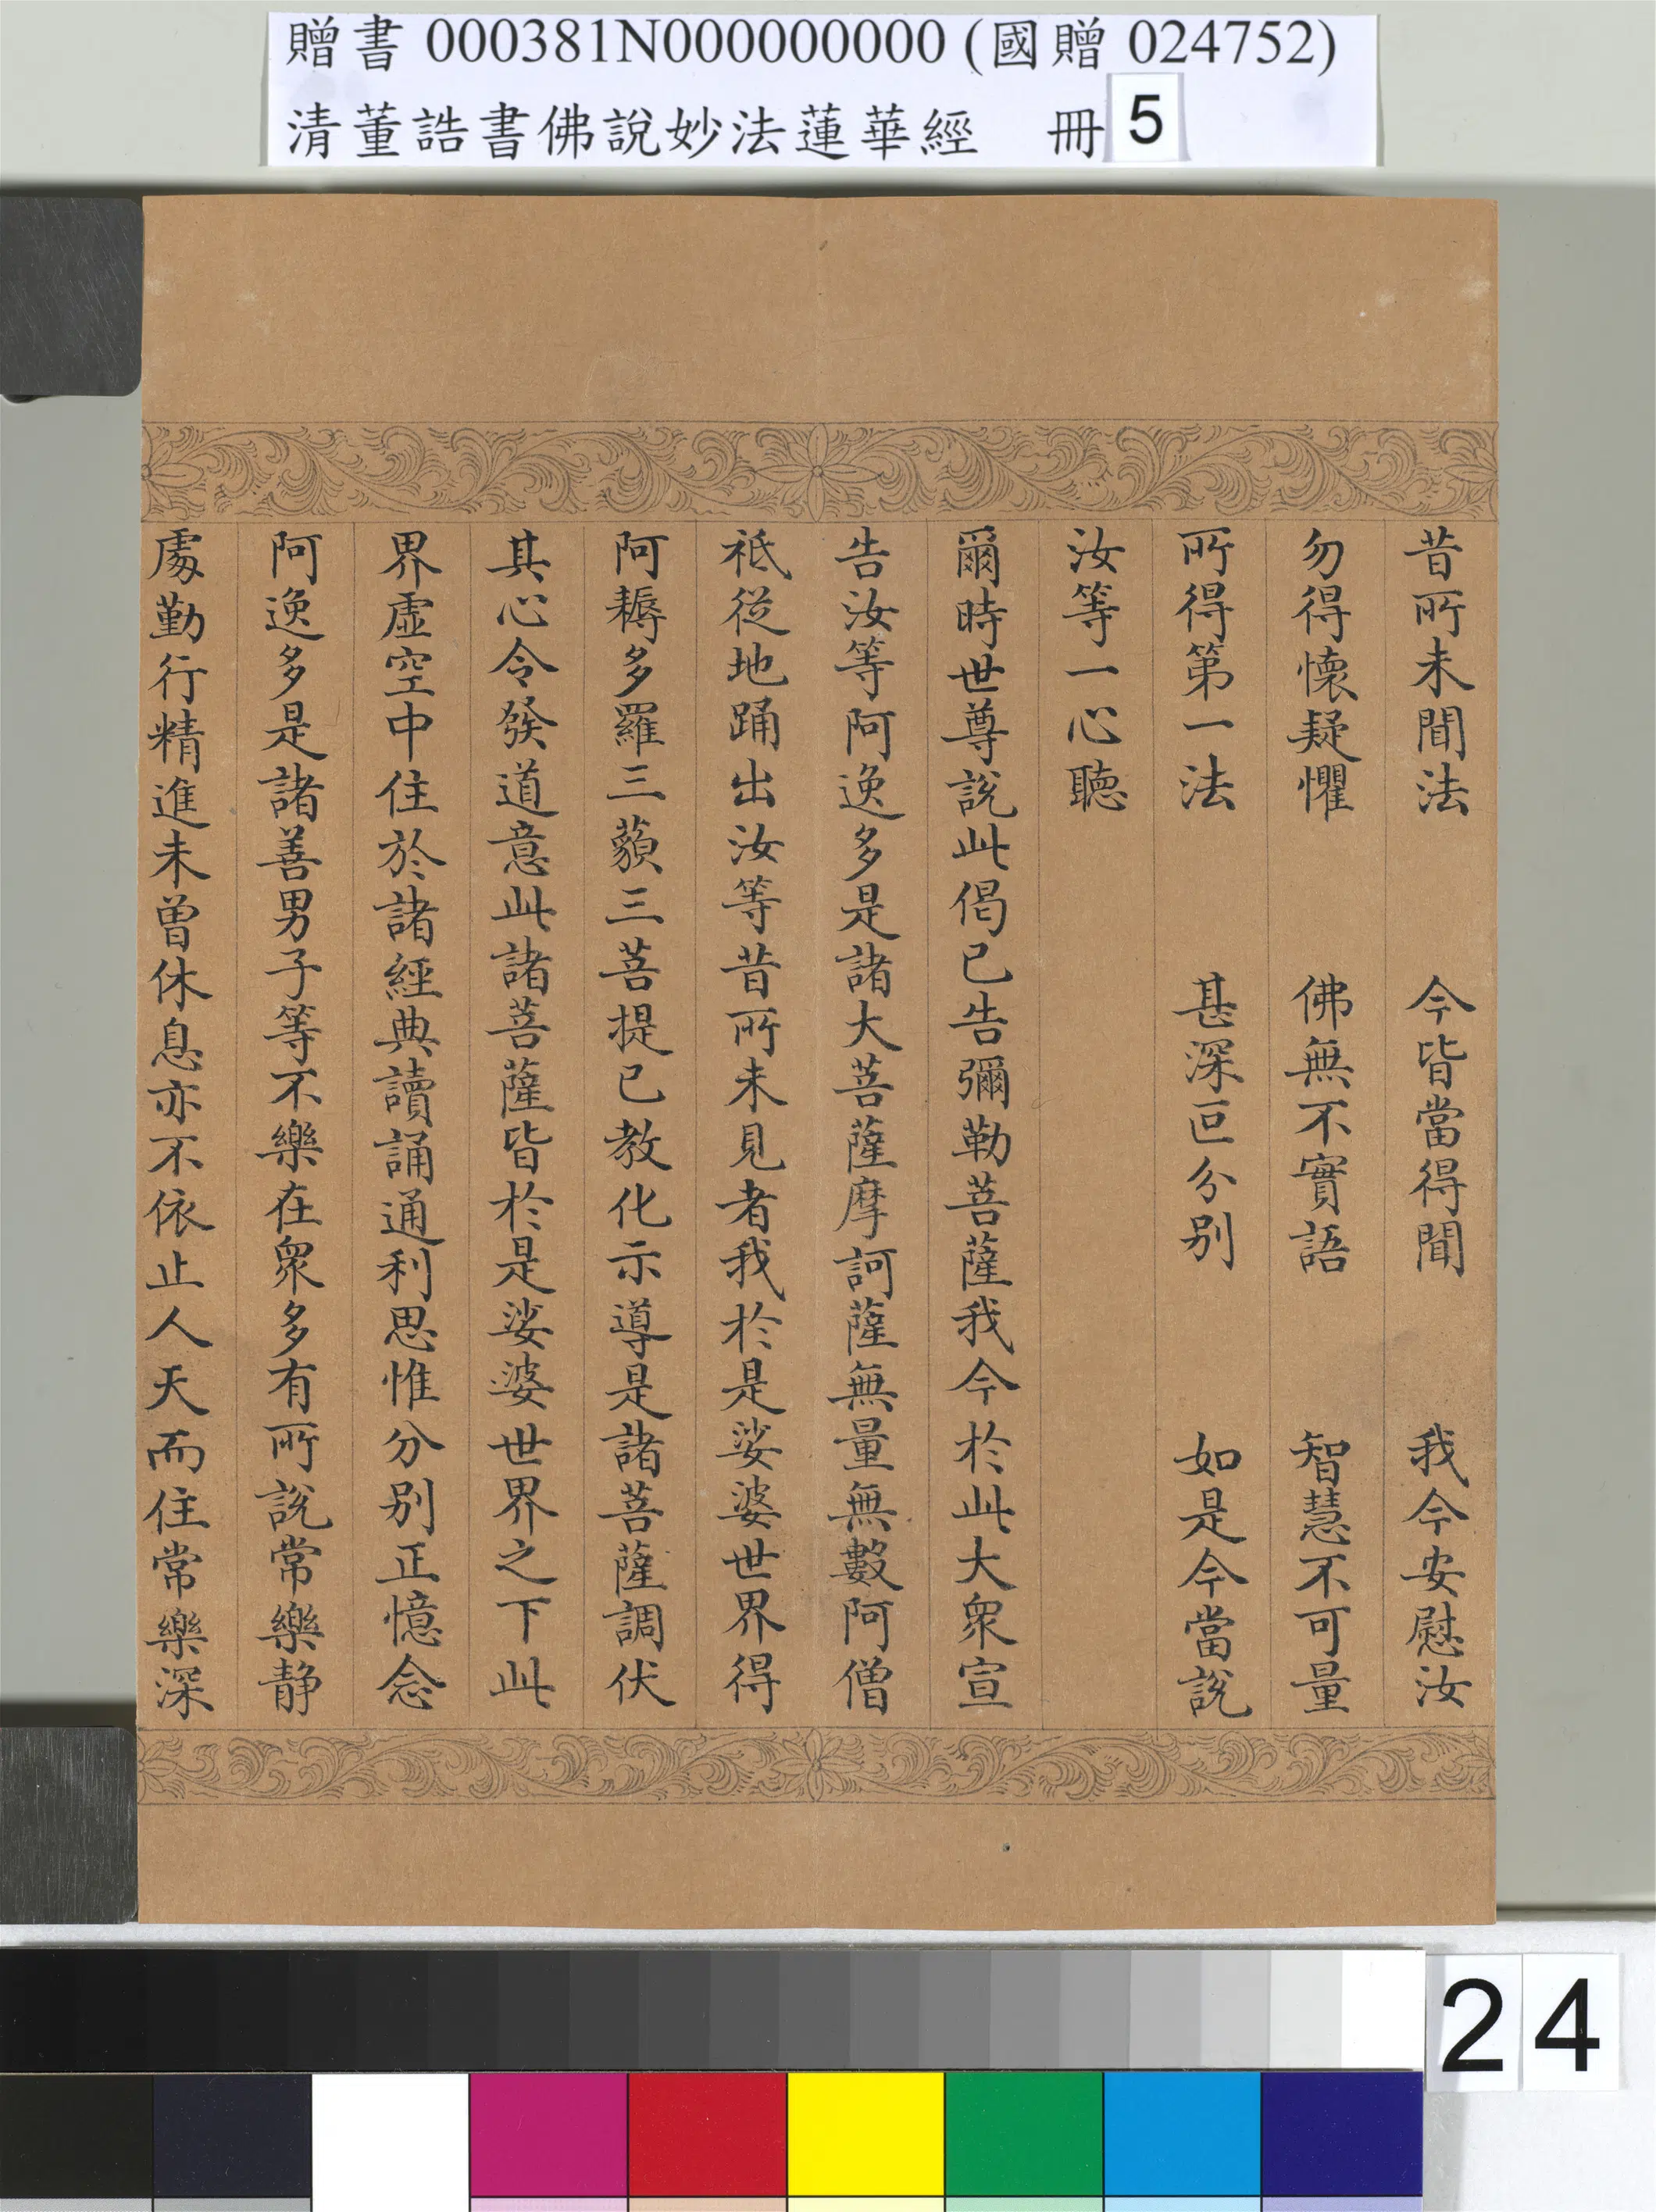 贈書 000381N000000000 (國贈 024752)
清董誥書佛說妙法蓮華經 冊 5
昔所未聞法 今皆當得聞 我今安慰汝
勿得懷疑懼 佛無不實語 智慧不可量
所得第一法 甚深叵分別 如是今當說
汝等一心聽
爾時世尊說此偈已告彌勒菩薩我今於此大衆宣
告汝等阿逸多是諸大菩薩摩訶薩無量無數阿僧
祇從地踊出汝等昔所未見者我於是娑婆世界得
阿耨多羅三藐三菩提已教化示導是諸菩薩調伏
其心令發道意此諸菩薩皆於是娑婆世界之下此
界虛空中住於諸經典讀誦通利思惟分別正憶念
阿逸多是諸善男子等不樂在衆多有所說常樂靜
處勤行精進未曾休息亦不依止人天而住常樂深
24